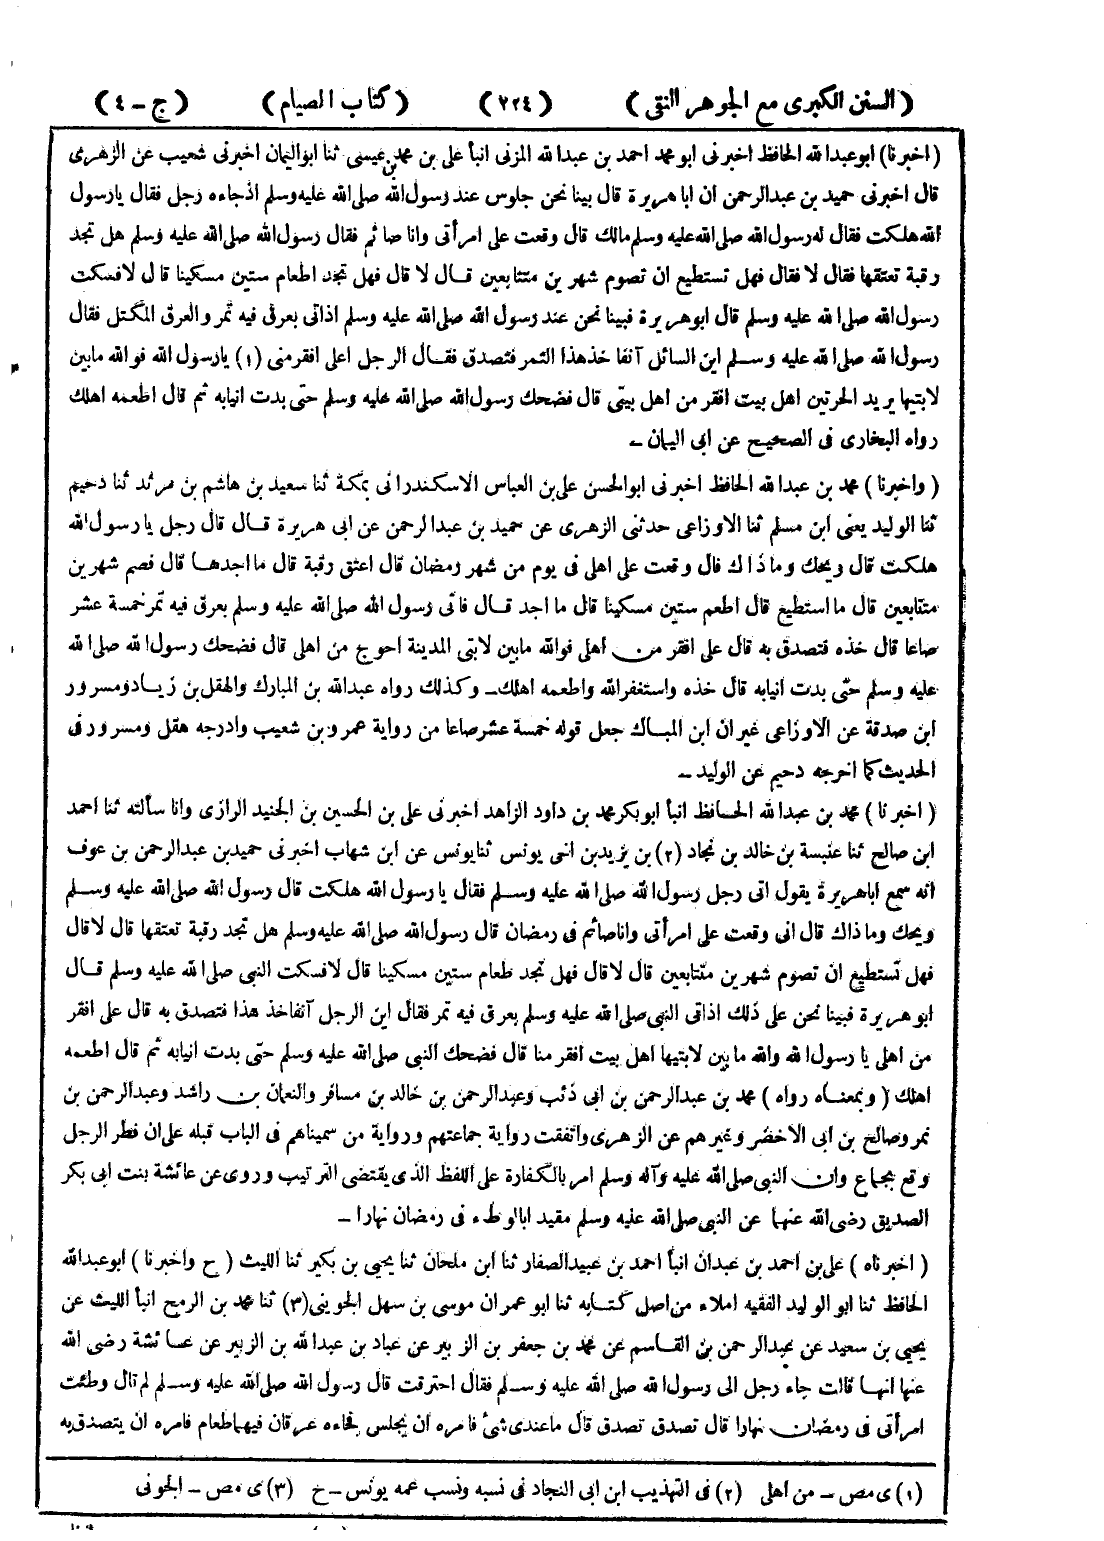 (السنن الكبرى مع الجوهر النقى) (٢٢٤) (كتاب الصيام) (ج - ٤)
(اخبرنا) ابوعبدالله الحافظ اخبرنى ابو محمد احمد بن عبدالله المزنى انبأ على بن محمد بن عيسى ثنا ابواليمان اخبرنى شعيب عن الزهرى
قال اخبرنى حميد بن عبدالرحمن ان اباهريرة قال بينا نحن جلوس عند رسول الله صلى الله عليه وسلم اذجاءه رجل فقال يارسول
الله هلكت فقال له رسول الله صلى الله عليه وسلم مالك قال وقعت على امرأتى وانا صائم فقال رسول الله صلى الله عليه وسلم هل تجد
رقبة تعتقها فقال لا فقال فهل تستطيع ان تصوم شهرين متتابعين قال لا قال فهل تجد اطعام ستين مسكينا قال لا فسكت
رسول الله صلى الله عليه وسلم قال ابوهريرة فبينا نحن عند رسول الله صلى الله عليه وسلم اذاتى بعرق فيه تمر والعرق المكتل فقال
رسول الله صلى الله عليه وسلم اين السائل آنفا خذهذا التمر فتصدق فقال الرجل اعلى افقرمنى (١) يارسول الله فوالله مابين
لابتيها يريد الحرتين اهل بيت افقر من اهل بيتى قال فضحك رسول الله صلى الله عليه وسلم حتى بدت انيابه ثم قال اطعمه اهلك
رواه البخارى فى الصحيح عن ابى اليمان -
(واخبرنا) محمد بن عبدالله الحافظ اخبرنى ابوالحسن على بن العباس الاسكندرانى بمكة ثنا سعيد بن هاشم بن مرثد ثنا دحيم
ثنا الوليد يعنى ابن مسلم ثنا الاوزاعى حدثنى الزهرى عن حميد بن عبدالرحمن عن ابى هريرة قال قال رجل يارسول الله
هلكت قال ويحك وماذاك قال وقعت على اهلى فى يوم من شهر رمضان قال اعتق رقبة قال مااجدها قال فصم شهرين
متتابعين قال مااستطيع قال اطعم ستين مسكينا قال ما اجد قال فاتى رسول الله صلى الله عليه وسلم بعرق فيه تمر خمسة عشر
صاعا قال خذه فتصدق به قال على افقر من اهلى فوالله مابين لابتى المدينة احوج من اهلى قال فضحك رسول الله صلى الله
عليه وسلم حتى بدت انيابه قال خذه واستغفرالله واطعمه اهلك - وكذلك رواه عبدالله بن المبارك والهقل بن زياد ومسرور
ابن صدقة عن الاوزاعى غيران ابن المباك جعل قوله خمسة عشرصاعا من رواية عمرو بن شعيب وادرجه هقل ومسرور فى
الحديث كما اخرجه دحيم عن الوليد -
(اخبرنا) محمد بن عبدالله الحافظ انبأ ابوبكر محمد بن داود الزاهد اخبرنى على بن الحسين بن الجنيد الرازى وانا سألته ثنا احمد
ابن صالح ثنا عنبسة بن خالد بن نجاد (٢) بن يزيد بن اخى يونس ثنا يونس عن ابن شهاب اخبرنى حميد بن عبدالرحمن بن عوف
انه سمع اباهريرة يقول اتى رجل رسول الله صلى الله عليه وسلم فقال يارسول الله هلكت قال رسول الله صلى الله عليه وسلم
ويحك وماذاك قال انى وقعت على امرأتى واناصائم فى رمضان قال رسول الله صلى الله عليه وسلم هل تجد رقبة تعتقها قال لاقال
فهل تستطيع ان تصوم شهرين متتابعين قال لا قال فهل تجد طعام ستين مسكينا قال لافسكت النبى صلى الله عليه وسلم قال
ابوهريرة فبينا نحن على ذلك اذاتى النبى صلى الله عليه وسلم بعرق فيه تمر فقال اين الرجل آنفاخذ هذا فتصدق به قال على افقر
من اهلى يا رسول الله والله ما بين لابتيها اهل بيت افقر منا قال فضحك النبى صلى الله عليه وسلم حتى بدت انيابه ثم قال اطعمه
اهلك (وبمعناه رواه) محمد بن عبدالرحمن بن ابى ذئب وعبدالرحمن بن خالد بن مسافر والنعمان بن راشد وعبدالرحمن بن
نمر وصالح بن ابى الاخضر وغيرهم عن الزهرى واتفقت رواية جماعتهم ورواية من سميناهم فى الباب قبله على ان فطر الرجل
وقع بجماع وان النبى صلى الله عليه وآله وسلم امر بالكفارة على اللفظ الذى يقتضى الترتيب وروى عن عائشة بنت ابى بكر
الصديق رضى الله عنهما عن النبى صلى الله عليه وسلم مقيدا بالوطء فى رمضان نهارا -
(اخبرناه) على بن احمد بن عبدان انبأ احمد بن عبيدالصفار ثنا ابن ملحان ثنا يحيى بن بكير ثنا الليث (ح واخبرنا) ابوعبدالله
الحافظ ثنا ابو الوليد الفقيه املاء من اصل كتابه ثنا ابو عمران موسى بن سهل الجوينى (٣) ثنا محمد بن الرمح انبأ الليث عن
يحيى بن سعيد عن عبدالرحمن بن القاسم عن محمد بن جعفر بن الزبير عن عباد بن عبدالله بن الزبير عن عائشة رضى الله
عنها انها قالت جاء رجل الى رسول الله صلى الله عليه وسلم فقال احترقت قال رسول الله صلى الله عليه وسلم لم قال وطئت
امرأتى فى رمضان نهارا قال تصدق تصدق قال ماعندى شئ فامره ان يجلس فجاءه عرقان فيهما طعام فامره ان يتصدق به
(١) ى مص - من اهلى (٢) فى التهذيب ابن ابى النجاد فى نسبه ونسب عمه يونس - ح (٣) ى مص - الجونى